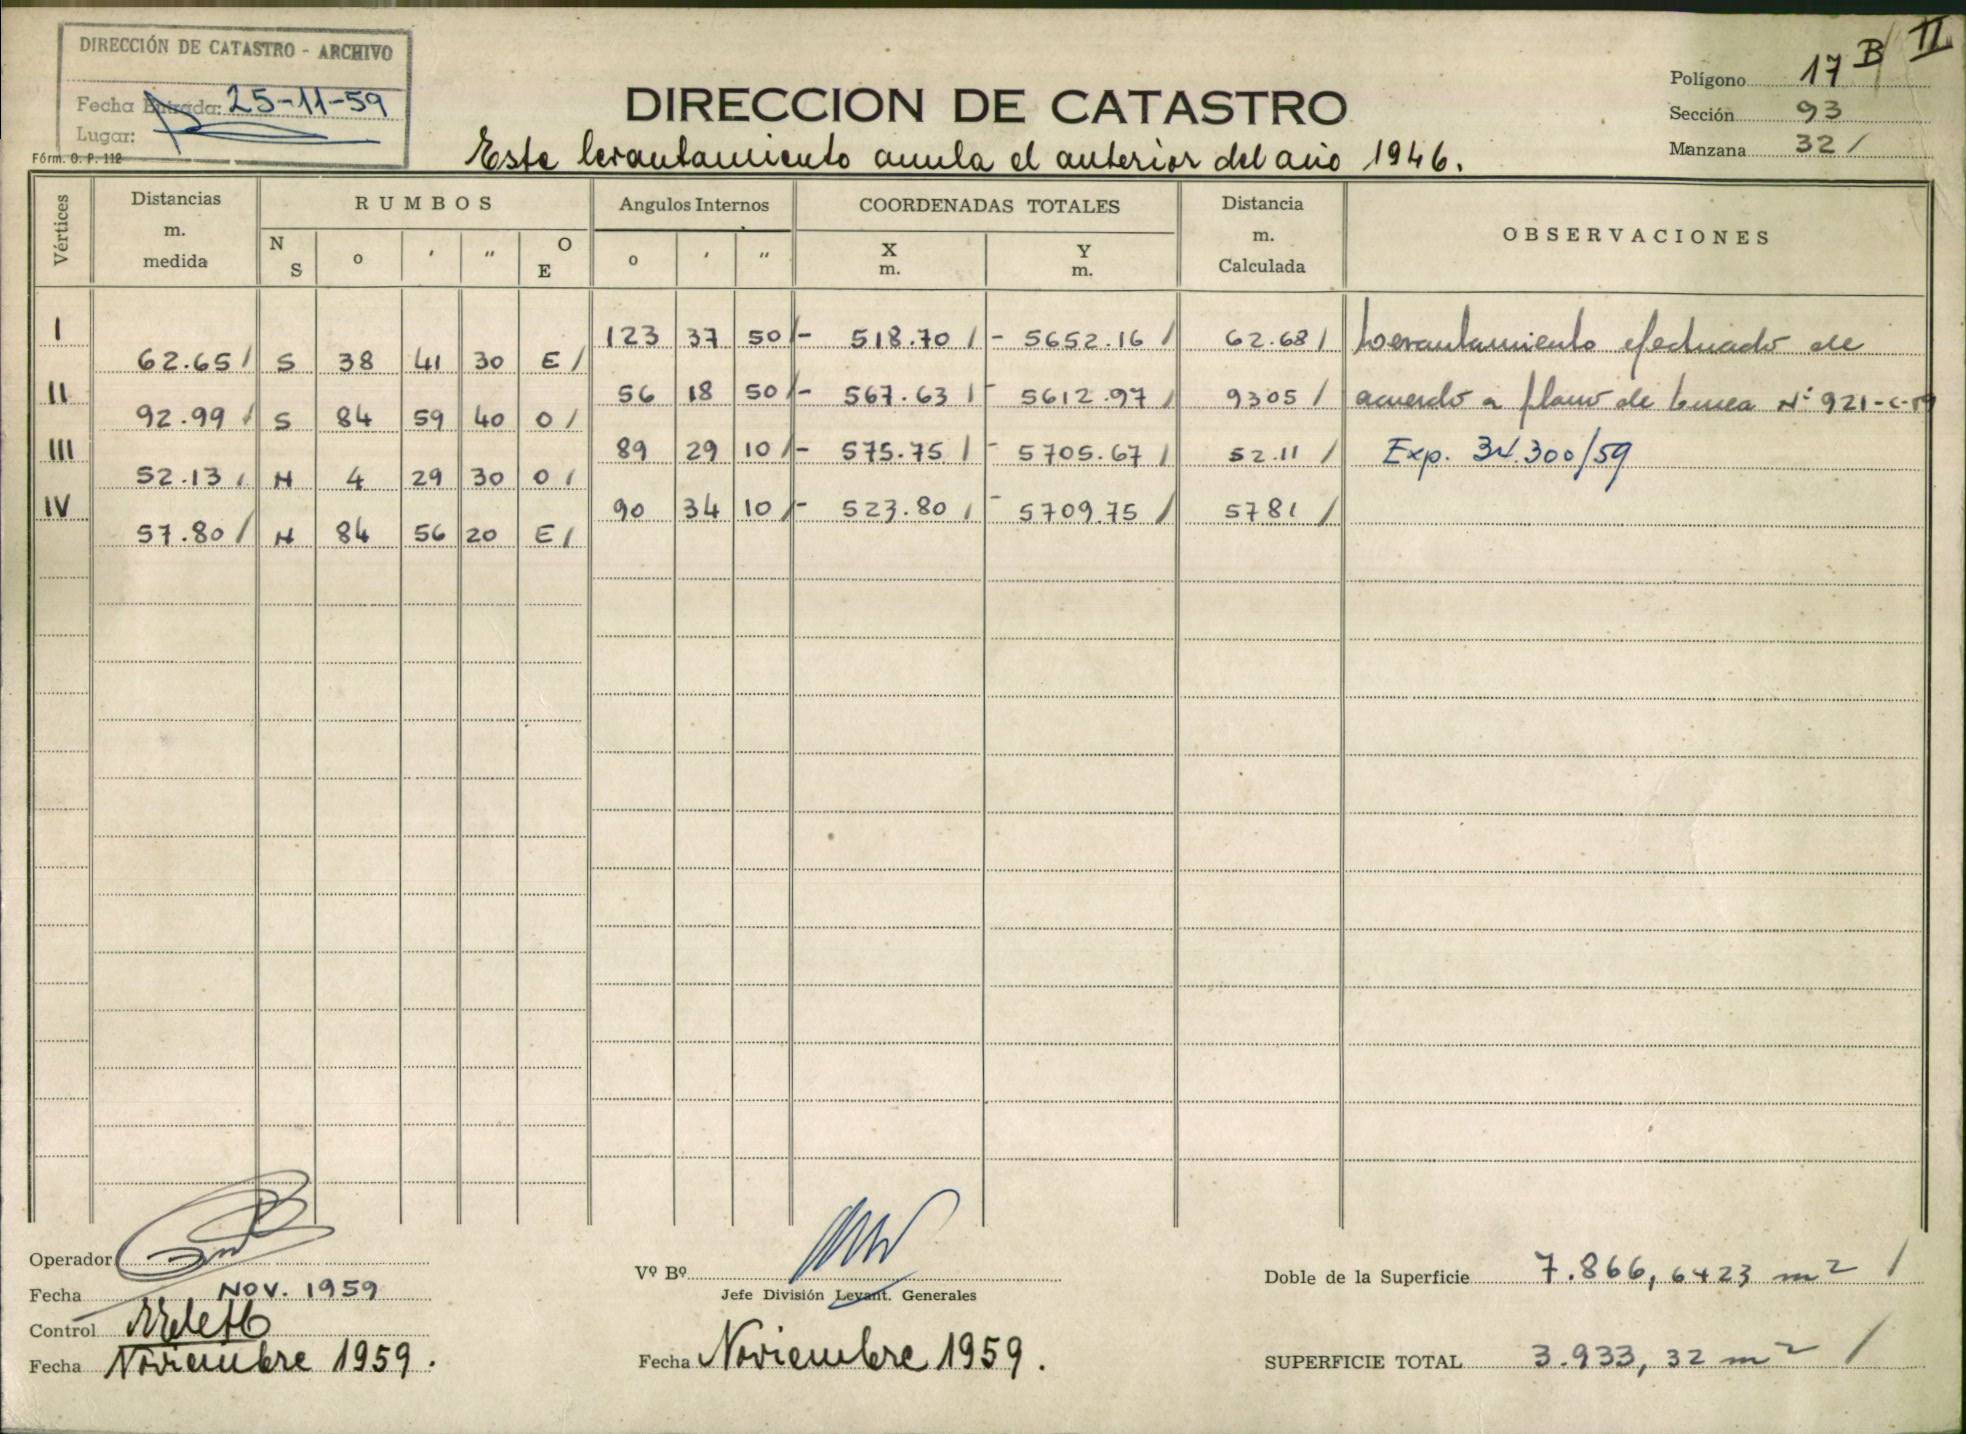 DIRECCIÓN DE CATASTRO - ARCHIVO
Fecha Entrada: 25-11-59
Lugar:
Fórm. O. P. 112
DIRECCION DE CATASTRO
Este levantamiento anula el anterior del año 1946.
Polígono 17 B/ II
Sección 93
Manzana 32 /
Vértices
Distancias m. medida
RUMBOS
N S
o ' "
O E
Angulos Internos
o ' "
COORDENADAS TOTALES
X m.
Y m.
Distancia m. Calculada
OBSERVACIONES
I 123 37 50 / - 518.70 / - 5652.16 / 62.68 / Levantamiento efectuado de
62.65 / S 38 41 30 E /
II 56 18 50 / - 567.63 / - 5612.97 / 9305 / acuerdo a plano de linea Nº 921-C-59
92.99 / S 84 59 40 O /
III 89 29 10 / - 575.75 / - 5705.67 / 52.11 / Exp. 34.300/59
52.13 / N 4 29 30 O /
IV 90 34 10 / - 523.80 / - 5709.75 / 5781 /
57.80 / N 84 56 20 E /
Operador
Fecha NOV. 1959
Control
Fecha Noviembre 1959.
Vº Bº
Jefe División Levant. Generales
Fecha Noviembre 1959.
Doble de la Superficie 7.866,6423 m² /
SUPERFICIE TOTAL 3.933,32 m² /